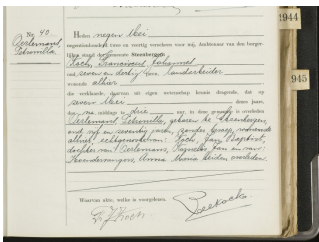 No. 40.
Oerlemans,
Petronilla
Heden negen Mei
negentienhonderd vier en veertig verscheen voor mij, Ambtenaar van den burger-
lijken stand der gemeente Steenbergen:
Koch, Franciscus Johannes
oud zeven en dertig jaar, landarbeider
wonende alhier
die verklaarde, daarvan uit eigen wetenschap kennis dragende, dat op
zeven Mei dezes jaars,
des na middags te drie ure, in deze gemeente is overleden
Oerlemans, Petronilla, geboren te Steenbergen,
oud en zeventig jaar, zonder beroep, wonende
alhier, echtgenoote van Koch, Jan Baptist,
dochter van Oerlemans, Jan en van
Anna Maria, beiden overleden.
Waarvan akte, welke is voorgelezen.
F. J. Koch
1944
945